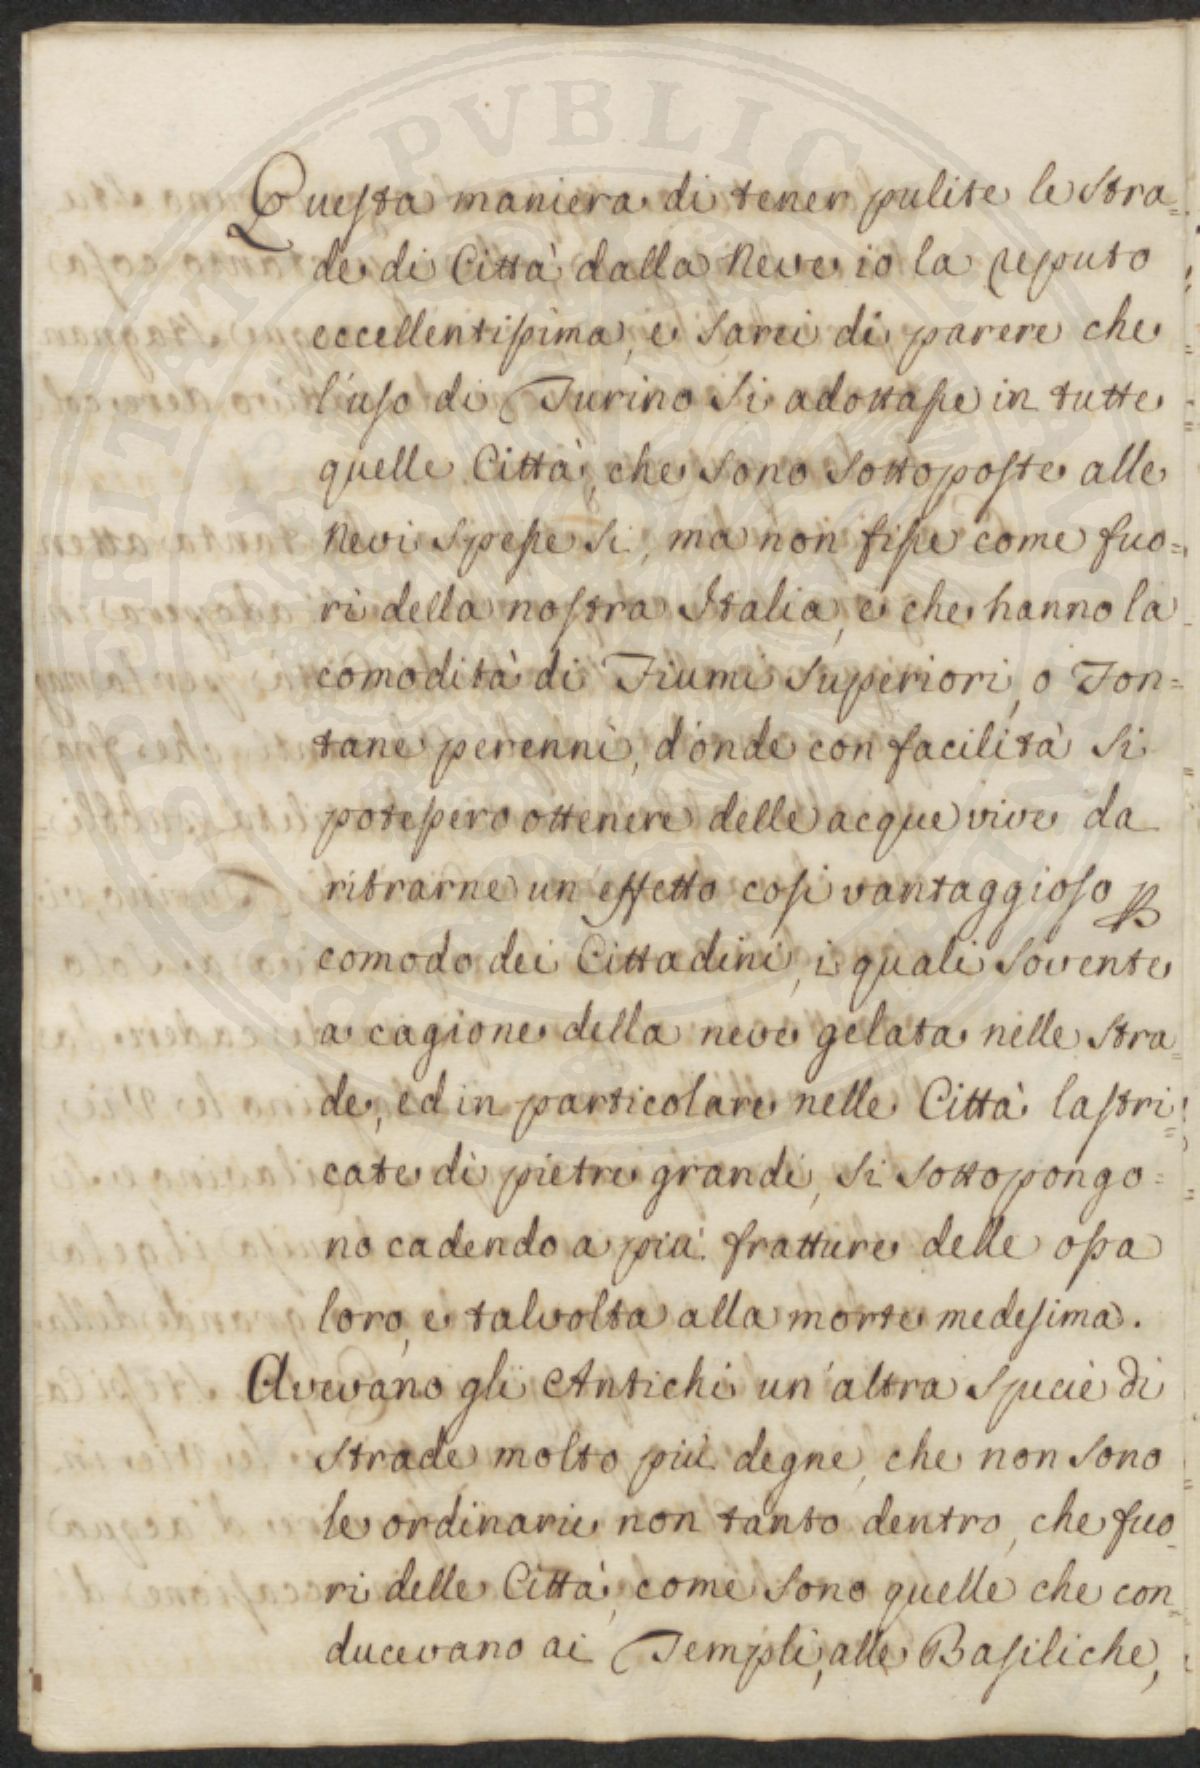 Questa maniera di tener pulite le Stra=
de di Città dalla Neve io la reputo
eccellentissima, e sarei di parere che
l'uso di Turino si adottasse in tutte
quelle Città, che sono sottoposte alle
Nevi spesse si, ma non fisse come fuo=
ri della nostra Italia, e che hanno la
comodità di Fiumi Superiori, o Fon=
tane perenni, d'onde con facilità si
potessero ottenere delle acque vive da
ritrarne un effetto così vantaggioso p
comodo dei Cittadini, i quali sovente
a cagione della neve gelata nelle Stra=
de, ed in particolare nelle Città lastri=
cate di pietre grandi, si sottopongo=
no cadendo a più fratture delle ossa
loro, e talvolta alla morte medesima.
Avevano gli Antichi un'altra specie di
Strade molto più degne, che non sono
le ordinarie non tanto dentro, che fuo=
ri delle Città, come sono quelle che con=
ducevano ai Templi, alle Basiliche,